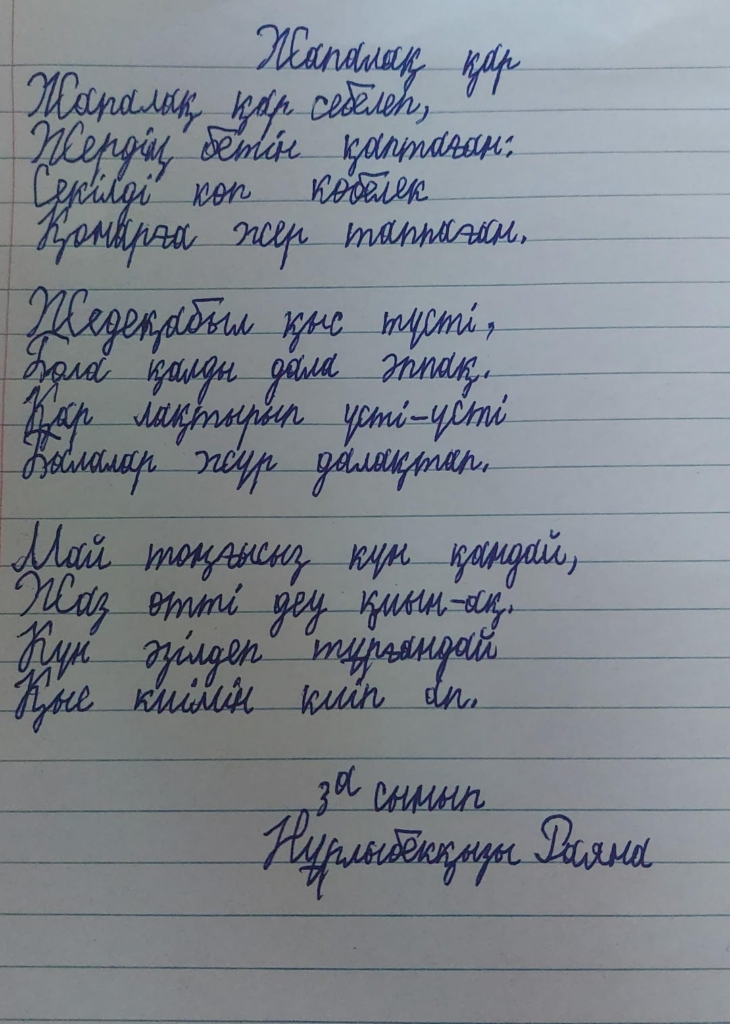 Жапалақ қар
Жапалақ қар себелеп,
Жердің бетін қаптаған:
Секілді көп көбелек
Қонарға жер таппаған.
Жедеқабыл қыс түсті,
Бола қалды дала әппақ.
Қар лақтырып үсті-үсті
Балалар жүр далақтап.
Май тоңғысыз күн қандай,
Жаз өтті деу қиын-ақ.
Күн әзілдеп тұрғандай
Қыс киімін киіп ап.
3а сынып
Нұрлыбекқызы Раяна